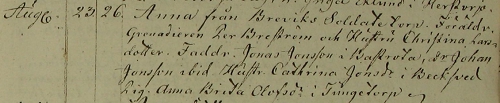 Aug. 23. 26. Anna från Breviks Soldate Torp. Föräldr.
Grenadieren Per Broström och Hustru Christina Lars-
dotter. Faddr. Jonas Jonsson i Bastrota, Dr Johan
Jonsson ibid. Hustr. Cathrina Jonsdr i Becksved
Pig. Anna Brita Olofsdr i Tungetorp